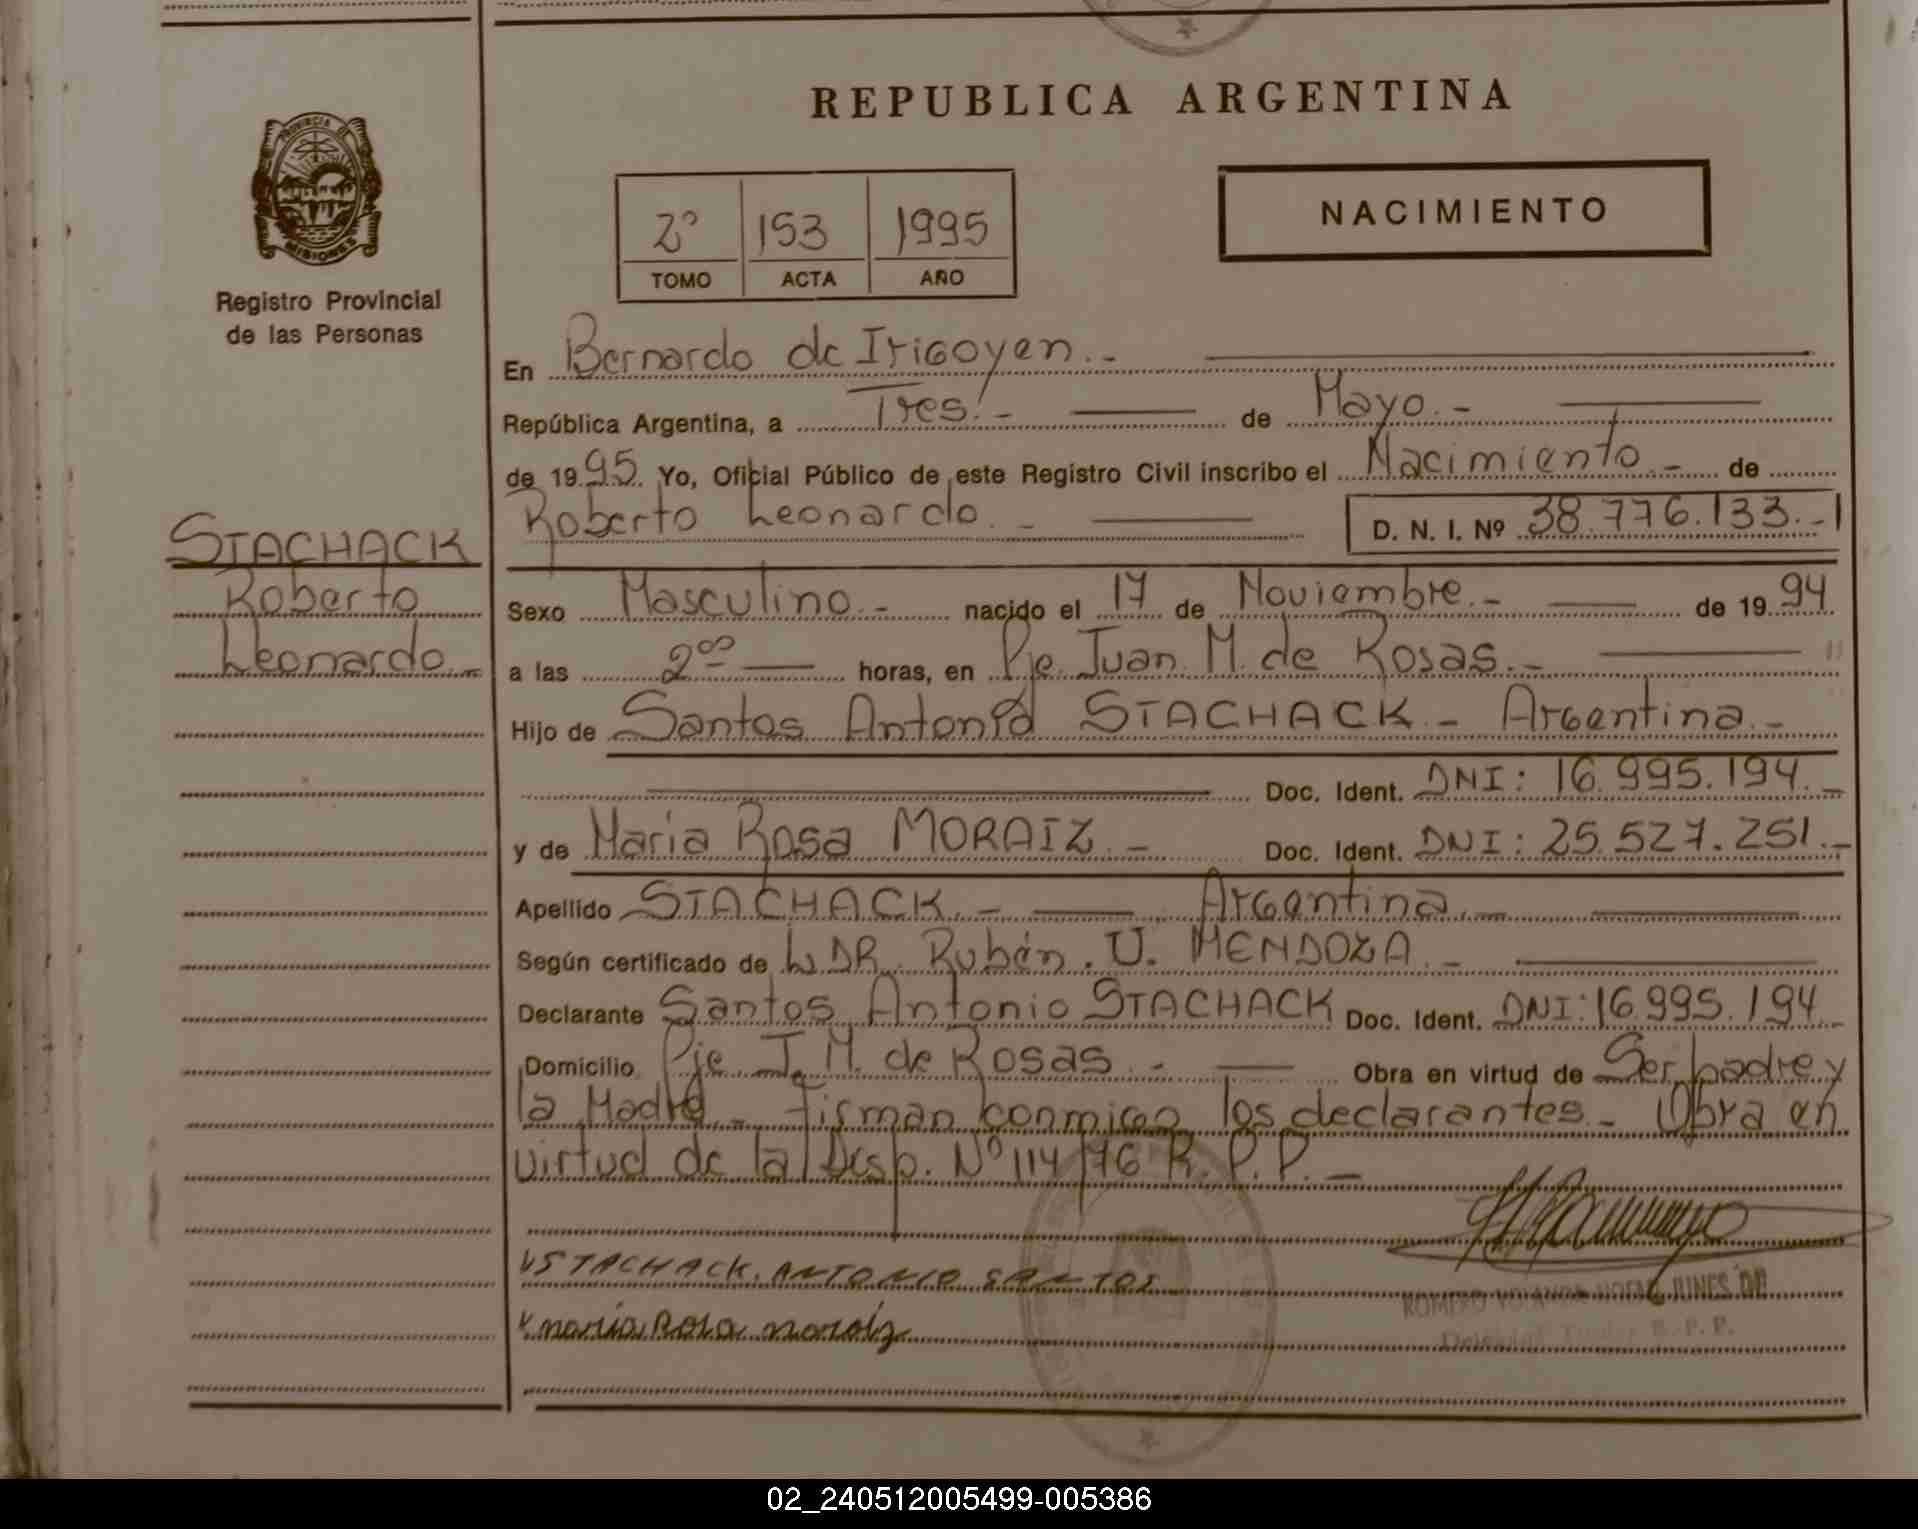 REPUBLICA ARGENTINA
PROVINCIA DE
MISIONES
Registro Provincial
de las Personas
2º 153 1995
TOMO ACTA AÑO
NACIMIENTO
STACHACK
Roberto
Leonardo.-
En Bernardo de Irigoyen.-
República Argentina, a Tres.- de Mayo.-
de 1995. Yo, Oficial Público de este Registro Civil inscribo el Nacimiento.- de
Roberto Leonardo.- D. N. I. Nº 38.776.133.-
Sexo Masculino.- nacido el 17 de Noviembre.- de 1994
a las 2 horas, en Pje. Juan M. de Rosas.-
Hijo de Santos Antonio STACHACK.- Argentina.-
Doc. Ident. DNI: 16.995.194.-
y de Maria Rosa MORAIZ.- Doc. Ident. DNI: 25.527.251.-
Apellido STACHACK.- Argentina.-
Según certificado de DR. Rubén. U. MENDOZA.-
Declarante Santos Antonio STACHACK Doc. Ident. DNI: 16.995.194.
Domicilio Pje J. M. de Rosas.- Obra en virtud de Ser padre y
la Madre.- firman conmigo los declarantes.- Obra en
virtud de la Disp. Nº 114/76 R. P. P.-
STACHACK. ANTONIO SANTOS
maria Rosa moraiz
ROMERO YOLANDA
R. P. P.
02_240512005499-005386